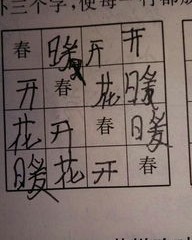 三个字,使每一行都
春 暖 开 开
开 春 花 暖
花 开 春 暖
暖 花 开 春